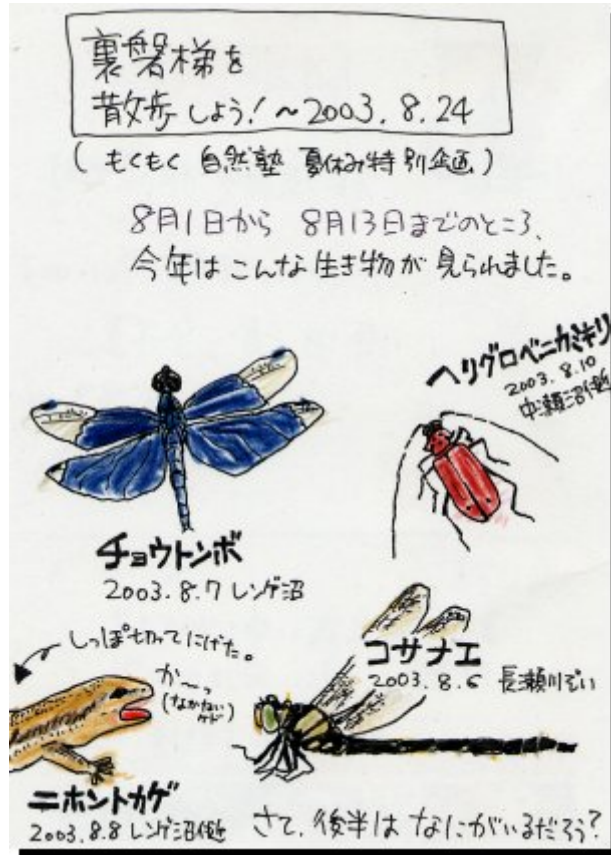 裏磐梯を
散歩しよう！～2003.8.24
（もくもく 自然塾 夏休み特別企画）
8月1日から 8月13日までのところ、
今年はこんな生き物が見られました。
ヘリグロベニカミキリ
2003.8.10
中瀬沼付近
チョウトンボ
2003.8.7 レンゲ沼
しっぽ切ってにげた。
か～っ
（なかないケド）
コサナエ
2003.8.6 長瀬川ぞい
ニホントカゲ
2003.8.8 レンゲ沼付近
さて、後半は なにがいるだろう？